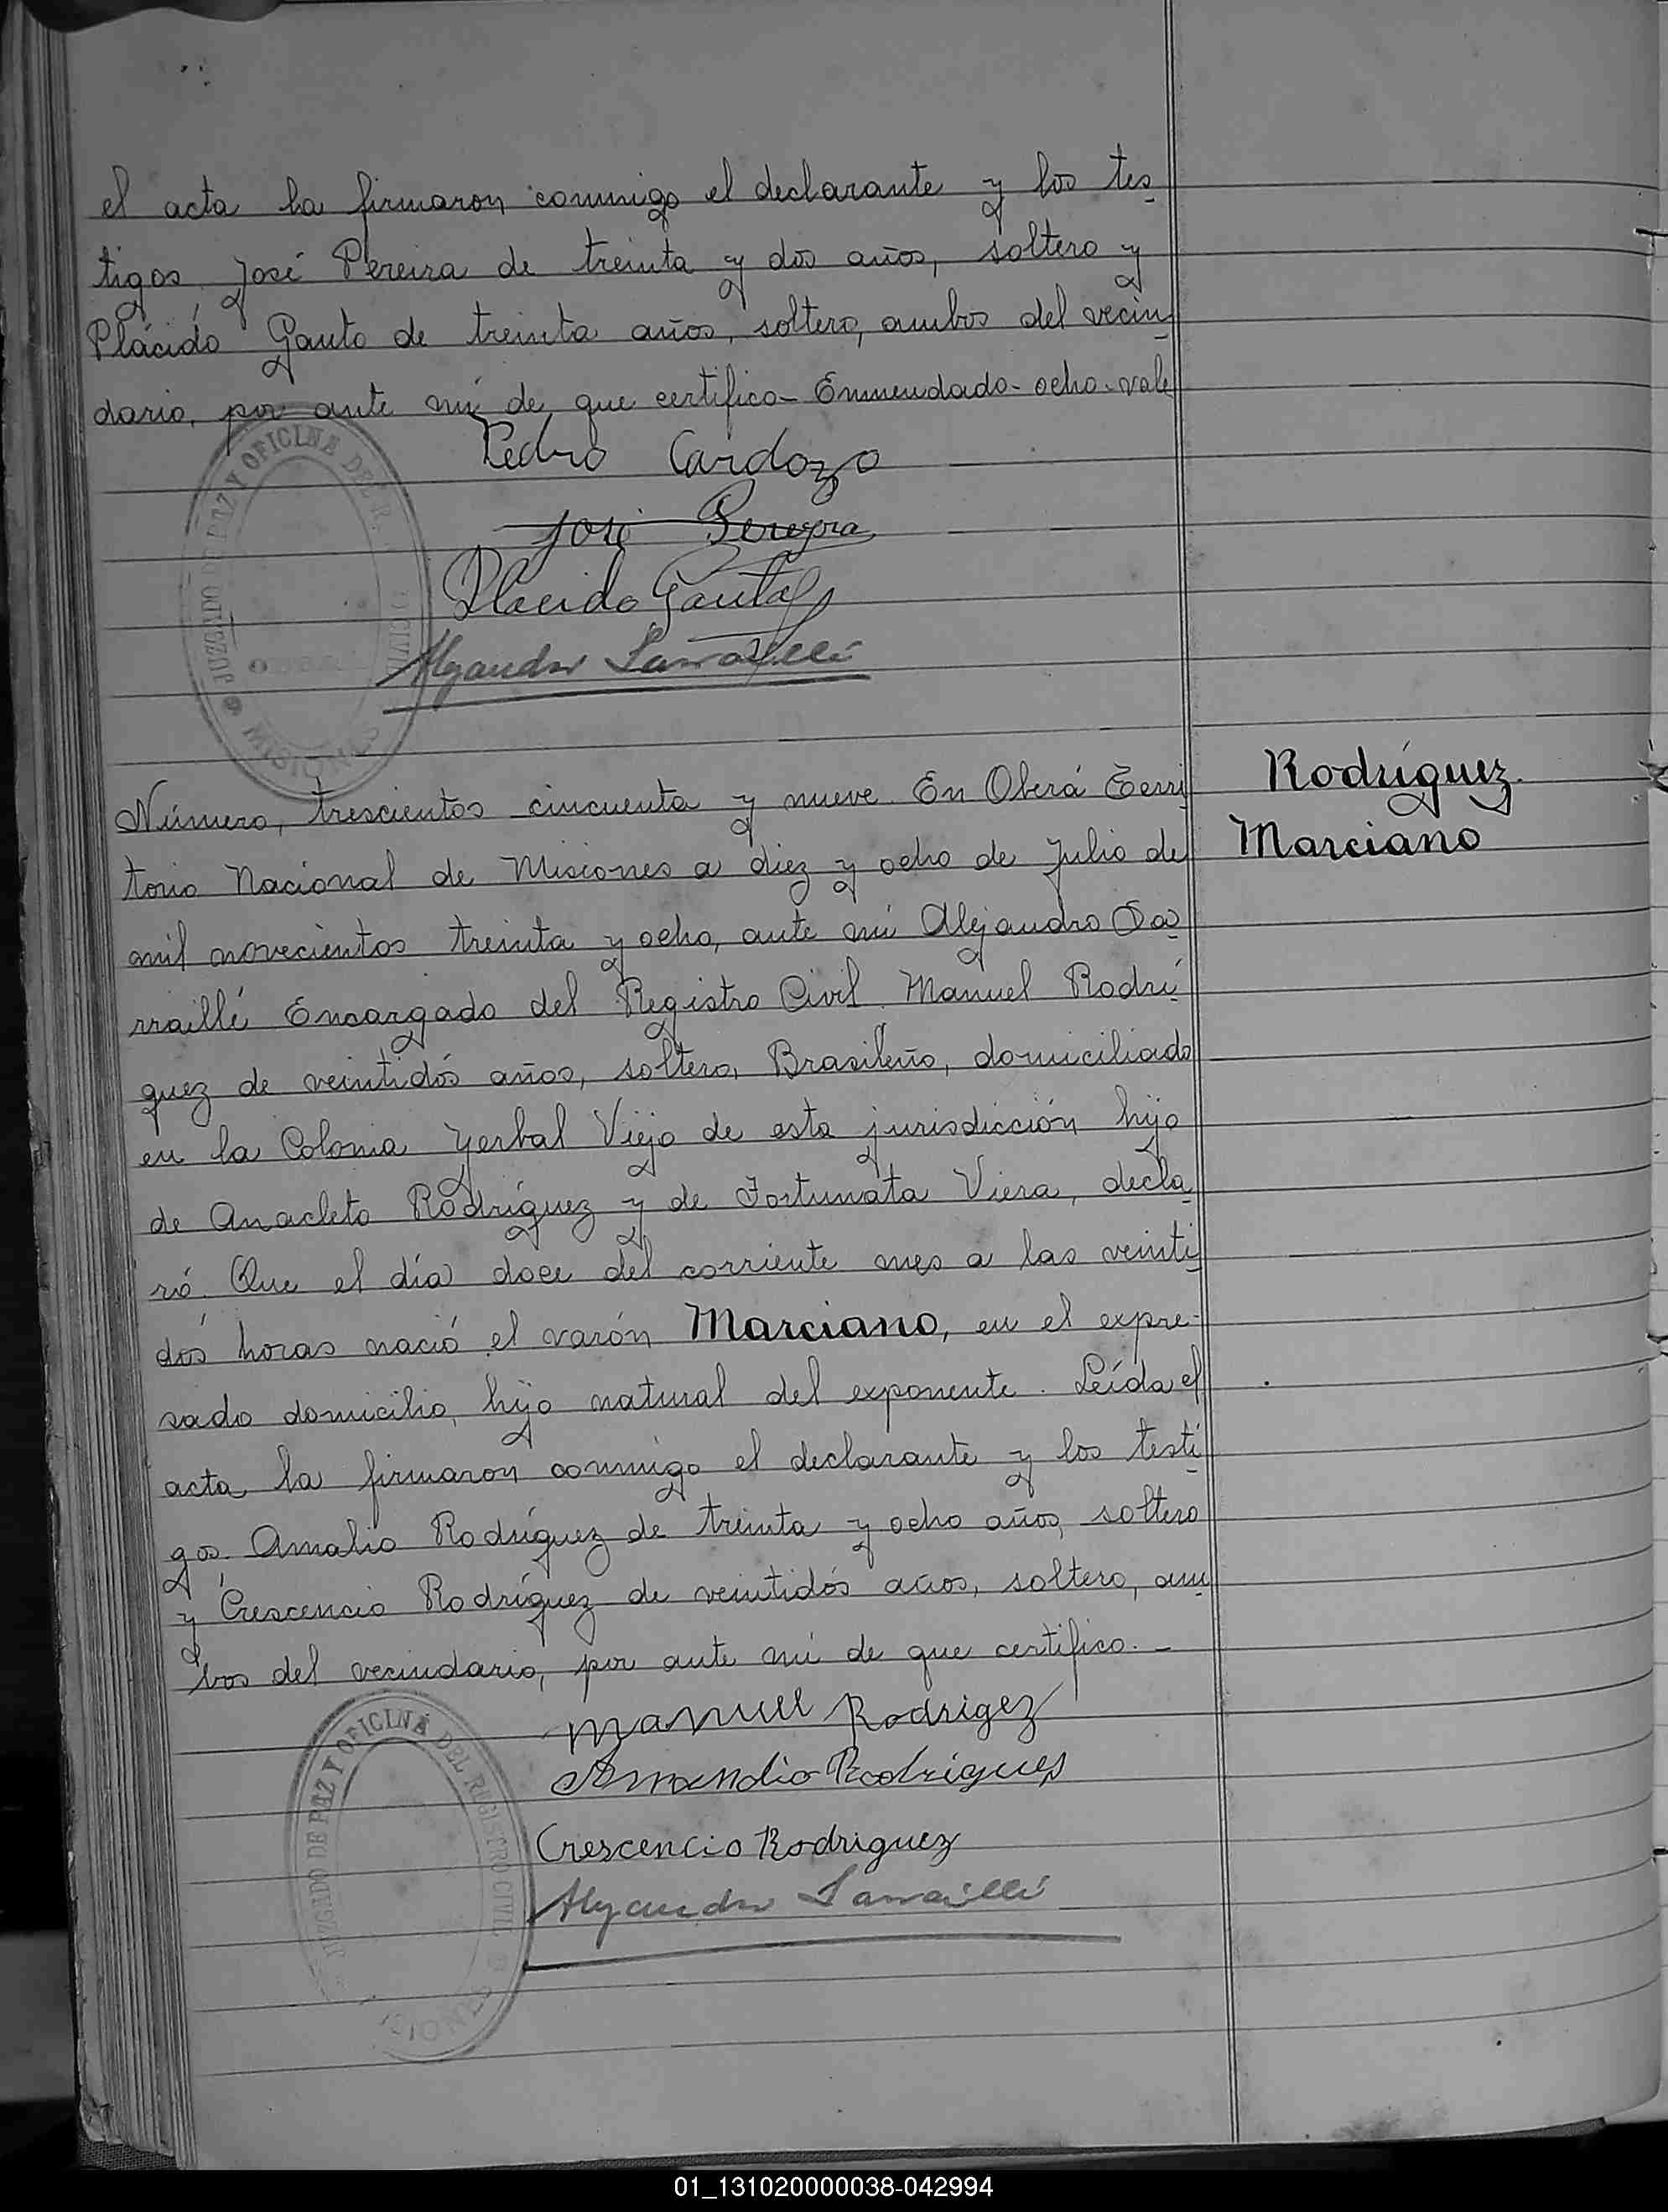 el acta la firmaron conmigo el declarante y los tes
tigos José Pereira de treinta y dos años, soltero y
Plácido Gauto de treinta años, soltero, ambos del vecin
dario, por ante mí de que certifico - Enmendado - ocho - vale
Pedro Cardozo
José Pereyra
Placido Gauto
JUZGADO DE PAZ Y OFICINA DEL R. CIVIL
MISIONES
Rodríguez
Marciano
Número, trescientos cincuenta y nueve. En Oberá Terri
torio Nacional de Misiones a diez y ocho de Julio de
mil novecientos treinta y ocho, ante mí Alejandro
Encargado del Registro Civil. Manuel Rodrí
guez de veintidós años, soltero, Brasileño, domiciliado
en la Colonia Yerbal Viejo de esta jurisdicción hijo
de Anacleto Rodríguez y de Fortunata Viera, decla
ró. Que el día doce del corriente mes a las veinti
dós horas nació el varón Marciano, en el expre-
sado domicilio, hijo natural del exponente. Leída el
acta la firmaron conmigo el declarante y los testi
gos. Amalio Rodríguez de treinta y ocho años, soltero
y Crescencio Rodríguez de veintidós años, soltero, am
bos del vecindario, por ante mí de que certifico. -
Manuel Rodrigez
Amandio Rodrigues
Crescencio Rodriguez
JUZGADO DE PAZ Y OFICINA DEL REGISTRO CIVIL
01_131020000038-042994